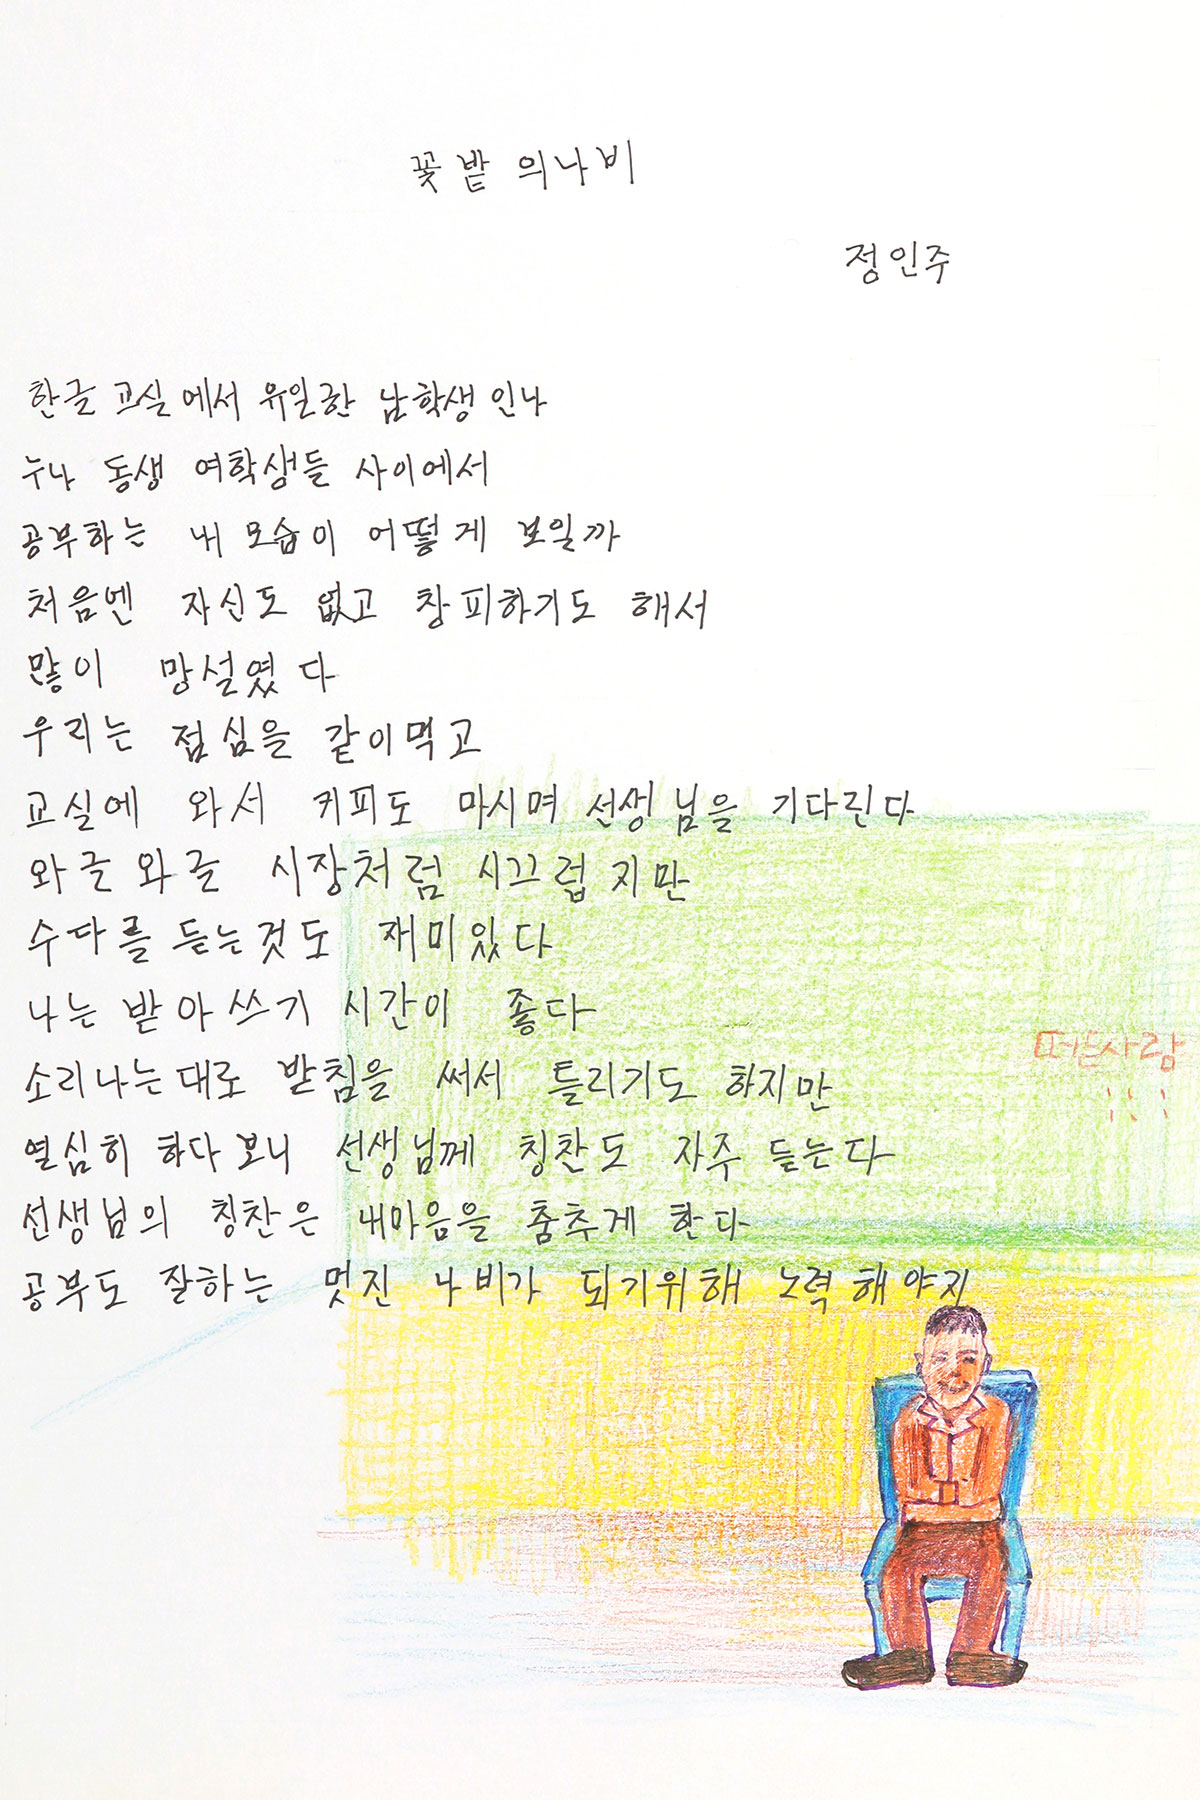 꽃밭의나비
정인주
한글 교실에서 유일한 남학생인나
누나 동생 여학생들 사이에서
공부하는 내 모습이 어떻게 보일까
처음엔 자신도 없고 창피하기도 해서
많이 망설였다
우리는 점심을 같이먹고
교실에 와서 커피도 마시며 선생님을 기다린다
와글와글 시장처럼 시끄럽지만
수다를 듣는것도 재미있다
나는 받아쓰기 시간이 좋다
소리나는대로 받침을 써서 틀리기도 하지만
열심히 하다보니 선생님께 칭찬도 자주 듣는다
선생님의 칭찬은 내마음을 춤추게 한다
공부도 잘하는 멋진 나비가 되기위해 노력해야지
떠는사람